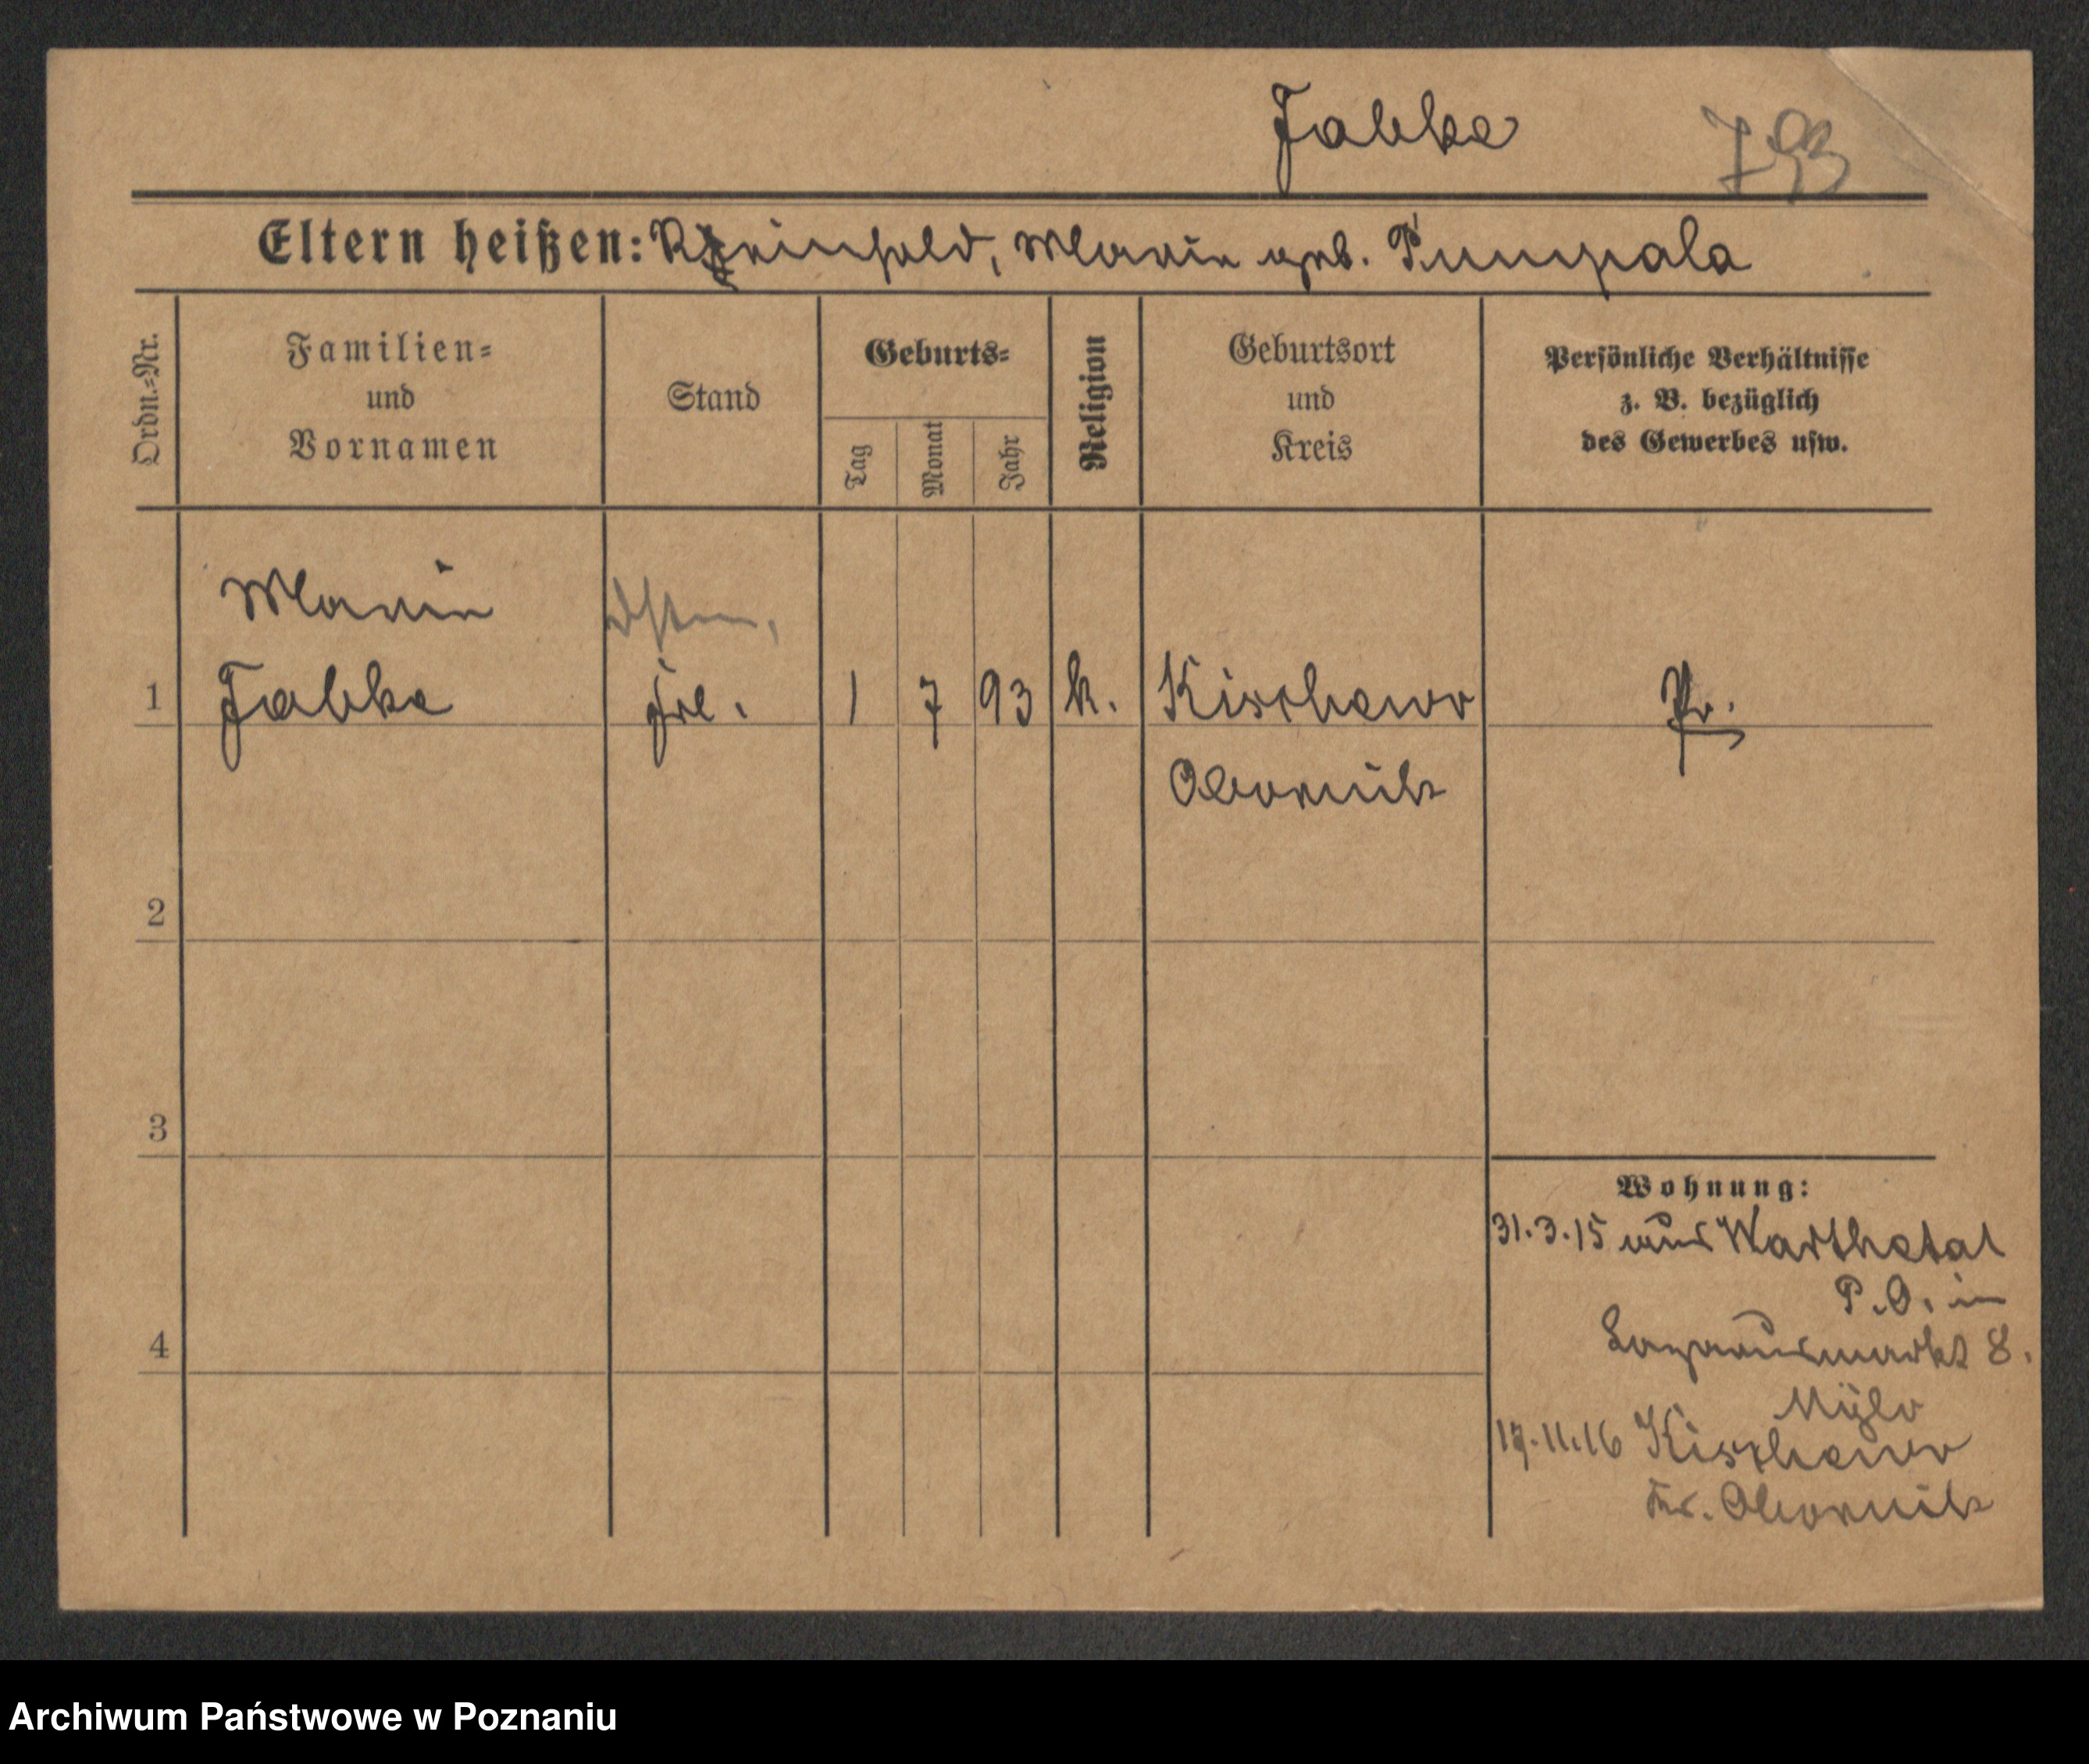 Jabke 793
Eltern heißen: Reinhold, Marie geb. Pumpala
Ordn.=Nr.
Familien=
und
Vornamen
Stand
Geburts=
Tag
Monat
Jahr
Religion
Geburtsort
und
Kreis
Persönliche Verhältnisse
z. B. bezüglich
des Gewerbes usw.
Marie
1 Jabke Frl. 1 7 93 k. Kischewo Pr.
Obornik
2
3
4
Wohnung:
31.3.15 aus Warthetal
P. O. in
Lazarusmarkt 8.
17.11.16 Kischewo
Kr. Obornik
Archiwum Państwowe w Poznaniu